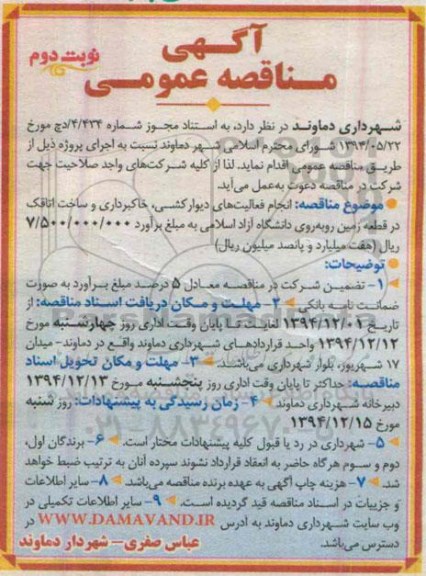 آگهی
مناقصه عمومی
نوبت دوم
شهرداری دماوند در نظر دارد، به استناد مجوز شماره ۴/۴۳۴/دچ مورخ
۱۳۹۴/۰۵/۲۲ شورای محترم اسلامی شهر دماوند نسبت به اجرای پروژه ذیل از
طریق مناقصه عمومی اقدام نماید. لذا از کلیه شرکت‌های واجد صلاحیت جهت
شرکت در مناقصه دعوت به‌عمل می‌آید.
موضوع مناقصه: انجام فعالیت‌های دیوارکشی، خاکبرداری و ساخت اتاقک
در قطعه زمین روبه‌روی دانشگاه آزاد اسلامی به مبلغ برآورد ۷/۵۰۰/۰۰۰/۰۰۰
ریال (هفت میلیارد و پانصد میلیون ریال)
توضیحات:
۱- تضمین شرکت در مناقصه معادل ۵ درصد مبلغ برآورد به صورت
ضمانت نامه بانکی ۲- مهلت و مکان دریافت اسناد مناقصه: از
تاریخ ۱۳۹۴/۱۲/۰۱ لغایت تا پایان وقت اداری روز چهارشنبه مورخ
۱۳۹۴/۱۲/۱۲ واحد قراردادهای شهرداری دماوند واقع در دماوند- میدان
۱۷ شهریور، بلوار شهرداری می‌باشد. ۳- مهلت و مکان تحویل اسناد
مناقصه: حداکثر تا پایان وقت اداری روز پنجشنبه مورخ ۱۳۹۴/۱۲/۱۳
دبیرخانه شهرداری دماوند ۴- زمان رسیدگی به پیشنهادات: روز شنبه
مورخ ۱۳۹۴/۱۲/۱۵
۵- شهرداری در رد یا قبول کلیه پیشنهادات مختار است. ۶- برندگان اول،
دوم و سوم هرگاه حاضر به انعقاد قرارداد نشوند سپرده آنان به ترتیب ضبط خواهد
شد. ۷- هزینه چاپ آگهی به عهده برنده مناقصه می‌باشد. ۸- سایر اطلاعات
و جزییات در اسناد مناقصه قید گردیده است. ۹- سایر اطلاعات تکمیلی در
وب سایت شهرداری دماوند به ادرس WWW.DAMAVAND.IR در
دسترس می‌باشد.
عباس صفری- شهردار دماوند